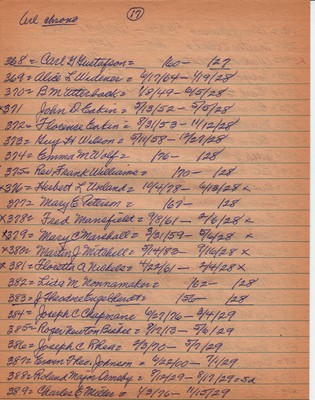 (17)
368 = Carl G Gustafson = /60 - /27
369 = Alice L Widener = 6/17/64 - 1/19/28
370 = B M Utterback = 1/8/49 - 2/5/28
x371 John D Eakin = 3/13/52 - 5/5/28
372 = Florence Eakin = 8/31/53 - 11/12/28
373 = Guy H Wilson = 9/11/58 - 12/27/28
374 = Emma M Wolf = /76 - /28
375 = Rev Frank Williams = /70 - /28
x376 = Herbert L Unland = 10/4/78 - 6/13/28 x
377 = Mary E Peterson = /67 - /28
x378 = Fred Mansfield = 9/8/61 - 2/16/28 x
x379 = Mary C Marshall = 3/31/59 - 5/6/28 x
x380 = Martin J Mitchell = 5/14/83 - 9/16/28 x
x381 = Floretta A Nichols = 4/22/61 - 3/4/28 x
382 = Lida M Nonnamaker = /62 - /28
383 = J Theodore Engelhardt = /56 - /28
384 = Joseph C Chapman = 6/27/76 - 3/4/29
385 = Roger Newton Bishee = 9/17/13 - 5/6/29
386 = Joseph C Rhea = 2/3/70 - 5/7/29
387 = Erwin Theo. Johnson = 6/22/00 - 7/1/29
388 = Roland Major Ormsby = 8/12/29 - 8/17/29 = 5 x
389 = Charles E Miller = 1/3/76 - 11/15/29